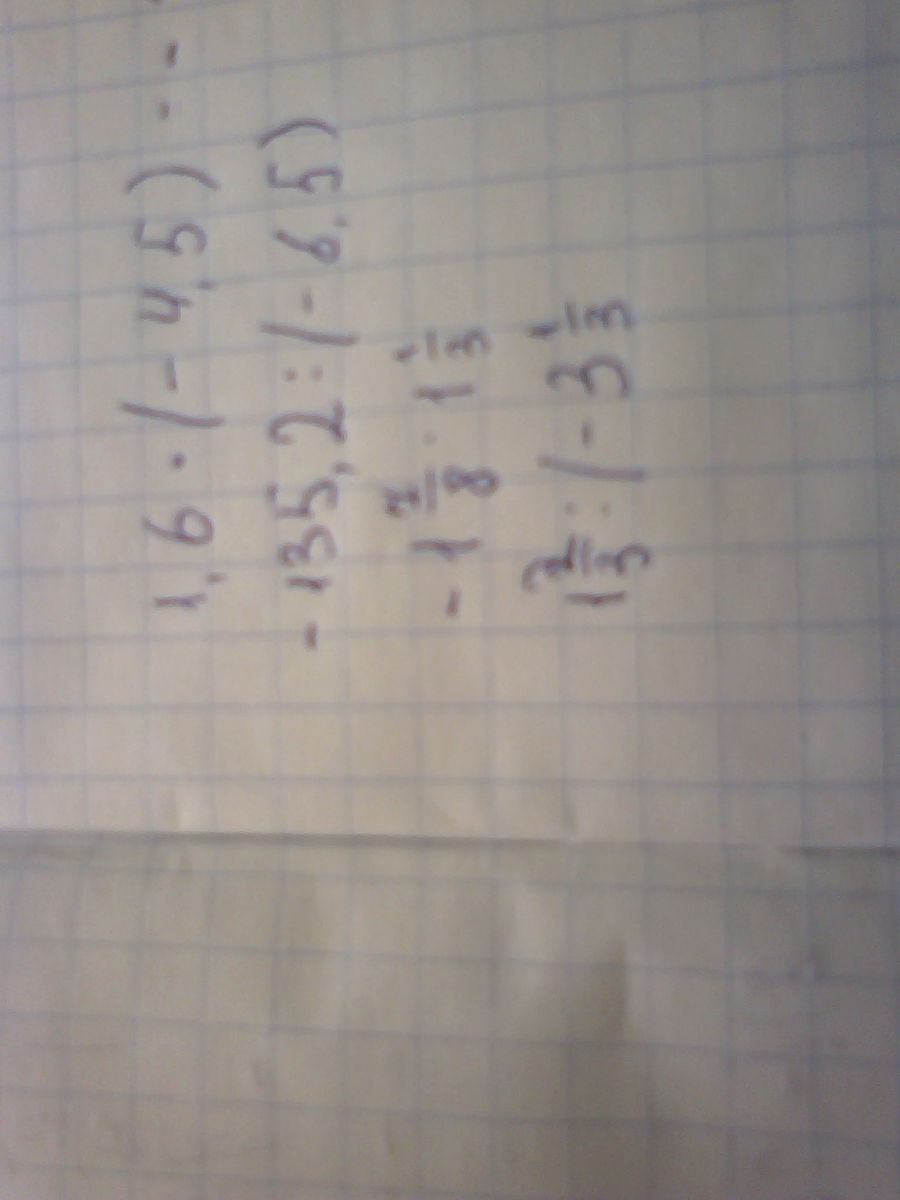 1,6 · (-4,5) - - -
-135,2 : (-6,5)
-1 7/8 · 1 1/3
1 2/3 : (-3 1/3